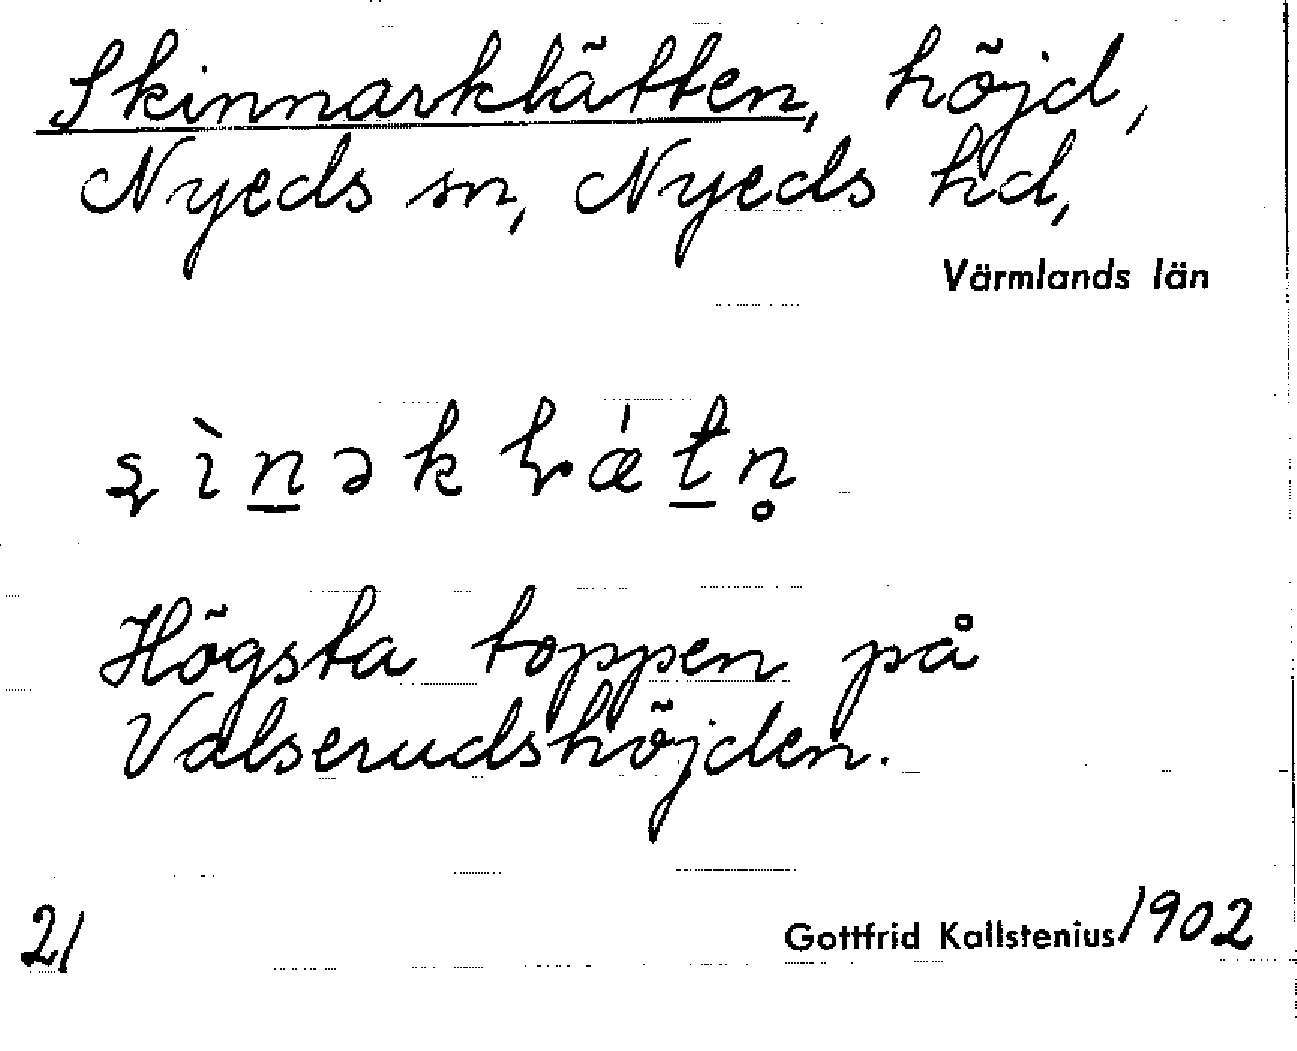 Skinnarklätten, höjd,
Nyeds sn, Nyeds hd,
Värmlands län
Högsta toppen på
Valserudshöjden.
21
Gottfrid Kallstenius 1902